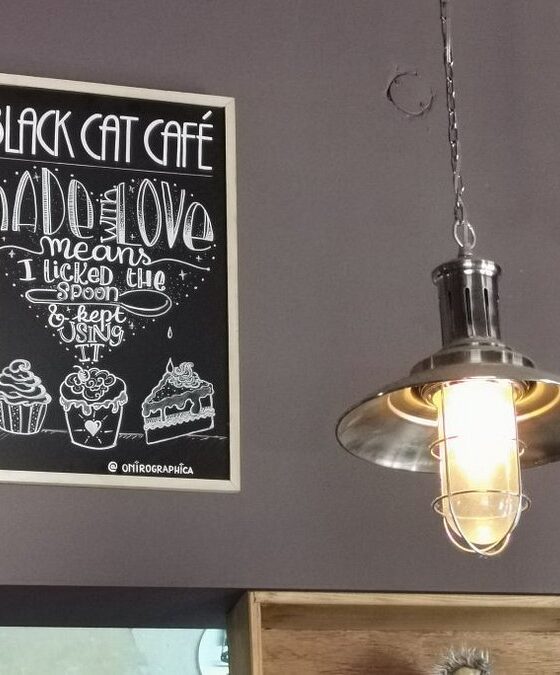 BLACK CAT CAFÉ
MADE with LOVE
means
I LICKED THE
SPOON
& kept
USING
IT
@ ONIROGRAPHICA